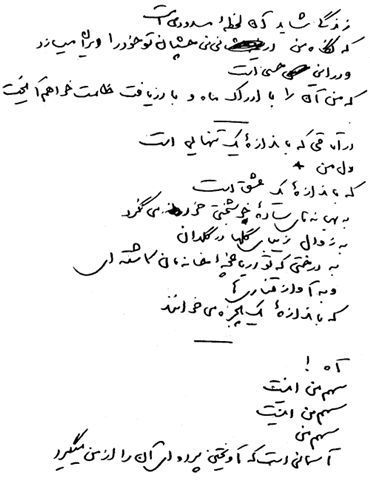 زندگی شاید آن لحظهٔ مسدودی است
که نگاه من در نی نی چشمان تو خود را ویران میسازد
و در این حسی است
که من آن را با ادراک ماه و با دریافت ظلمت خواهم آمیخت
در اتاقی که باندازهٔ یک تنهایی است
دل من
که باندازهٔ یک عشق است
به بهانه های سادهٔ خوشبختی خود می نگرد
به زوال زیبای گلها در گلدان
به درختی که تو در باغچهٔ خانه مان کاشته ای
و به آواز قناری ها
که باندازهٔ یک پنجره می خوانند
آه !
سهم من اینست
سهم من اینست
سهم من
آسمانی است که آویختن پرده ای آن را از من میگیرد